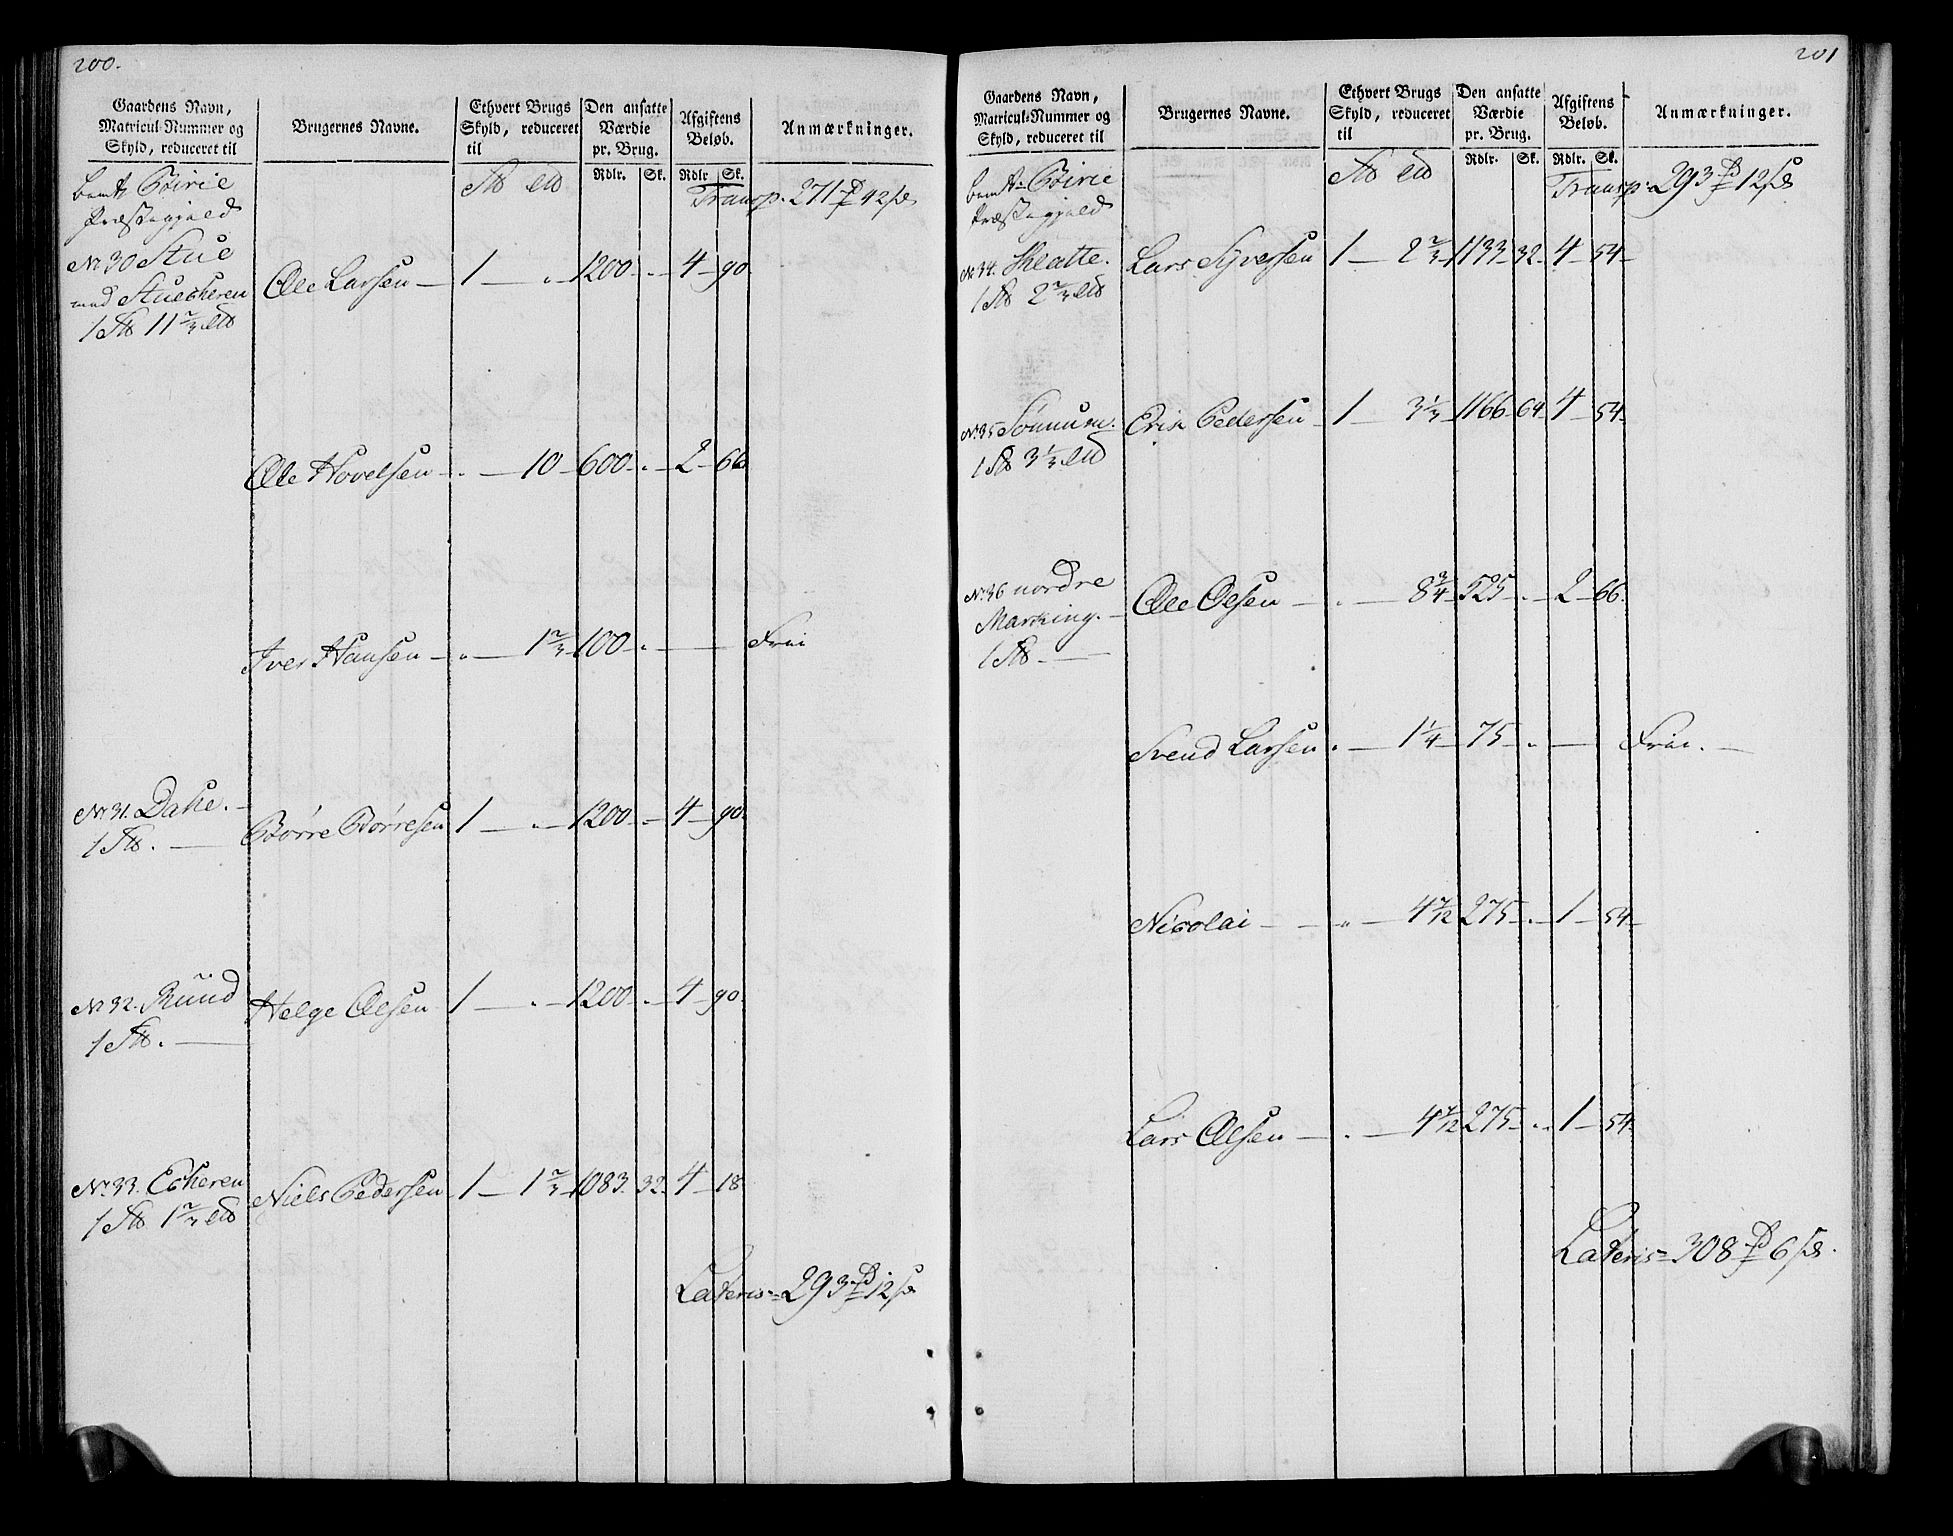 200.
Gaardens Navn,
Matricul-Nummer og
Skyld, reduceret til
Brugernes Navne.
Ethvert Brugs
Skyld, reduceret
til
Den ansatte
Værdie
pr. Brug.
Rdlr. Sk.
Afgiftens
Beløb.
Rdlr Sk.
Anmærkninger.
Birie
Præstegjeld
Transp. 271 42
No 30 Stue
med Stuesheren
1 11 2/3
Ole Larsen 1 " 1200 - 4 - 90
Ole Hovelsen " 10 - 600 - " 2 - 66
Iver Hansen - " 1 2/3 100 - " Frie
No 31. Dahe.
1
Børre Børresen 1 - " 1200 - 4 - 90
No 32. Ruud
1
Helge Olesen 1 - " 1200 - " 4 - 90
No 33. Ecsheren
1 1 2/3
Niels Pedersen 1 - 1 2/3 1083 - 32 - 4 - 18
Lateris = 293 12
201
Gaardens Navn,
Matricul-Nummer og
Skyld, reduceret til
Brugernes Navne.
Ethvert Brugs
Skyld, reduceret
til
Den ansatte
Værdie
pr. Brug.
Rdlr. Sk.
Afgiftens
Beløb.
Rdlr. Sk.
Anmærkninger.
Birie
Præstegjeld
Transp. 293 12
No 34. Sklatte.
1 2 2/3
Lars Syversen 1 - 2 2/3 1133 - 32 - 4 - 54
No 35 Sønnum.
1 3 1/3
Erik Pedersen 1 - 3 1/3 1166 - 64 - 4 - 54
No 36 nordre
Marking.
1
Ole Olsen - " 8 3/4 525 - " 2 - 66
Svend Larsen " 1 1/4 - 75 - " Frie. -
Nicolai - " 4 7/12 275 - " 1 - 54
Lars Olesen - " 4 7/12 275 - " 1 - 54
Lateris = 308 6